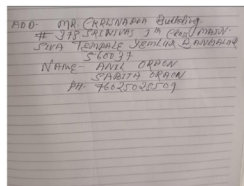 ADD- MR. CKRISNAPPA Building
# 378 SRINIVAS 5th CROSS MAIN
SIVA TEMPALE YEMLUR BANGALOR
560037
NAME- ANIL ORAON
SABITA ORAON
PH- 9602502